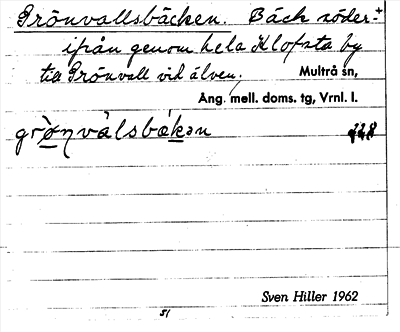 Grönvallsbäcken. Bäck söder-+
ifrån genom hela Klofsta by
till Grönvall vid älven, Multrå sn,
Ång. mell. doms. tg, Vrnl. l.
grø̀nvàlsbækən
Sven Hiller 1962
51